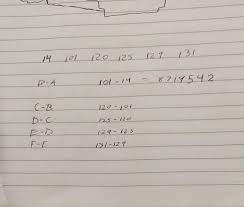 14 101 120 125 129 131
B-A 101-14 - 8719542
C-B 120-101
D-C 125-120
E-D 129-125
F-E 131-129